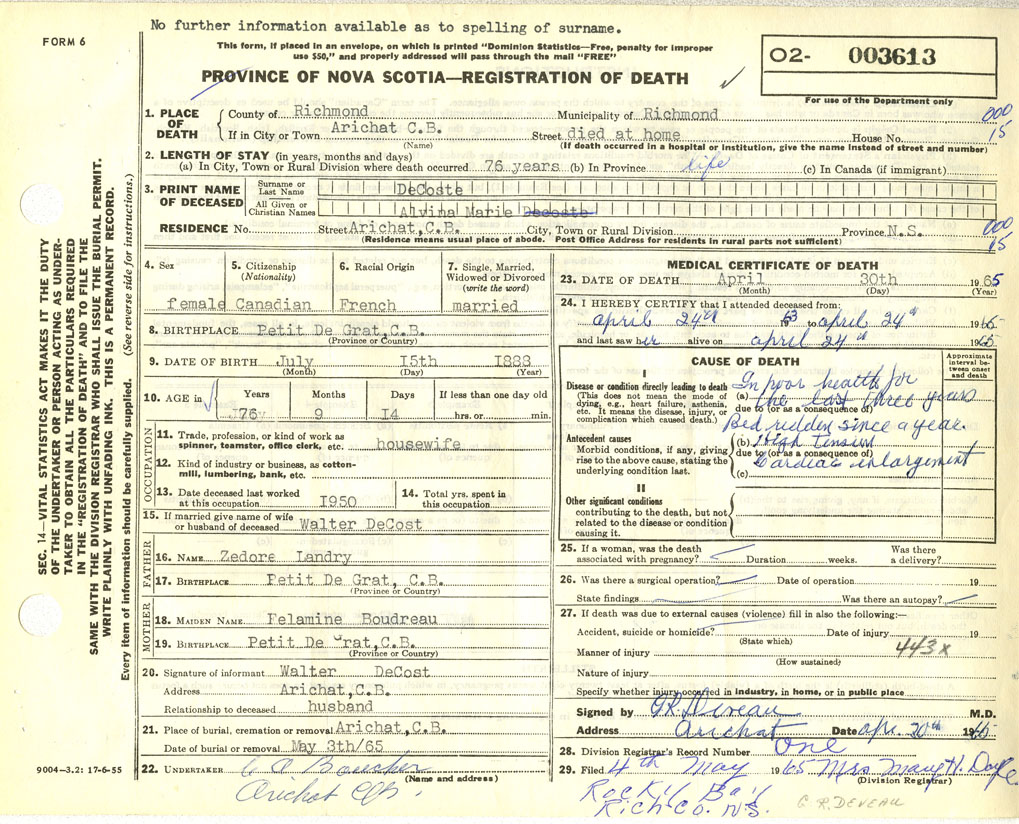 No further information available as to spelling of surname.
FORM 6
This form, if placed in an envelope, on which is printed "Dominion Statistics—Free, penalty for improper
use $50," and properly addressed will pass through the mail "FREE"
PROVINCE OF NOVA SCOTIA—REGISTRATION OF DEATH
02- 003613
For use of the Department only
1. PLACE OF DEATH County of Richmond Municipality of Richmond 000
If in City or Town Arichat C.B. Street died at home House No. 15
(Name) (If death occurred in a hospital or institution, give the name instead of street and number)
2. LENGTH OF STAY (in years, months and days)
(a) In City, Town or Rural Division where death occurred 76 years (b) In Province life (c) In Canada (if immigrant)
3. PRINT NAME OF DECEASED Surname or Last Name DeCoste
All Given or Christian Names Alvina Marie Decoste
RESIDENCE No. Street Arichat,C.B. City, Town or Rural Division Province N.S. 000
(Residence means usual place of abode. Post Office Address for residents in rural parts not sufficient) 15
4. Sex female
5. Citizenship (Nationality) Canadian
6. Racial Origin French
7. Single, Married, Widowed or Divorced (write the word) married
8. BIRTHPLACE Petit De Grat,C.B.
(Province or Country)
9. DATE OF BIRTH July 15th 1888
(Month) (Day) (Year)
10. AGE in Years Months Days If less than one day old
76 9 14 hrs. or min.
OCCUPATION
11. Trade, profession, or kind of work as
spinner, teamster, office clerk, etc. housewife
12. Kind of industry or business, as cotton-
mill, lumbering, bank, etc.
13. Date deceased last worked
at this occupation 1950
14. Total yrs. spent in
this occupation
15. If married give name of wife
or husband of deceased Walter DeCost
FATHER
16. NAME Zedore Landry
17. BIRTHPLACE Petit De Grat, C.B.
(Province or Country)
MOTHER
18. MAIDEN NAME Felamine Boudreau
19. BIRTHPLACE Petit De Grat,C.B.
(Province or Country)
20. Signature of informant Walter DeCost
Address Arichat,C.B.
Relationship to deceased husband
21. Place of burial, cremation or removal Arichat,C.B.
Date of burial or removal May 3th/65
22. UNDERTAKER
(Name and address)
Arichat CB.
9004—3.2: 17-6-55
SEC. 14—VITAL STATISTICS ACT MAKES IT THE DUTY
OF THE UNDERTAKER OR PERSON ACTING AS UNDER-
TAKER TO OBTAIN ALL THE PARTICULARS REQUIRED
IN THE "REGISTRATION OF DEATH" AND TO FILE THE
SAME WITH THE DIVISION REGISTRAR WHO SHALL ISSUE THE BURIAL PERMIT.
WRITE PLAINLY WITH UNFADING INK. THIS IS A PERMANENT RECORD.
Every item of information should be carefully supplied. (See reverse side for instructions.)
MEDICAL CERTIFICATE OF DEATH
23. DATE OF DEATH April 30th 1965
(Month) (Day) (Year)
24. I HEREBY CERTIFY that I attended deceased from:
april 24th 1963 to april 24th 1965
and last saw her alive on april 24th 1965
CAUSE OF DEATH
Approximate interval between onset and death
I
Disease or condition directly leading to death
(This does not mean the mode of
dying, e.g., heart failure, asthenia,
etc. It means the disease, injury, or
complication which caused death.)
(a) In poor health for
the last three years
due to (or as a consequence of)
Bed ridden since a year.
Antecedent causes
Morbid conditions, if any, giving
rise to the above cause, stating the
underlying condition last.
(b) High Tension
due to (or as a consequence of)
(c) Cardiac enlargement
II
Other significant conditions
contributing to the death, but not
related to the disease or condition
causing it.
25. If a woman, was the death
associated with pregnancy? Duration weeks. Was there
a delivery?
26. Was there a surgical operation? Date of operation 19
State findings Was there an autopsy?
27. If death was due to external causes (violence) fill in also the following:—
Accident, suicide or homicide? Date of injury 19
(State which)
Manner of injury 443x
(How sustained)
Nature of injury
Specify whether injury occurred in industry, in home, or in public place
Signed by Deveau M.D.
Address Arichat Date apr. 30th 19
28. Division Registrar's Record Number One
29. Filed 4th May 1965 Mrs Mary H. Doyle
(Division Registrar)
Rocky Bay
Rich. Co. N.S.
G R. DEVEAU